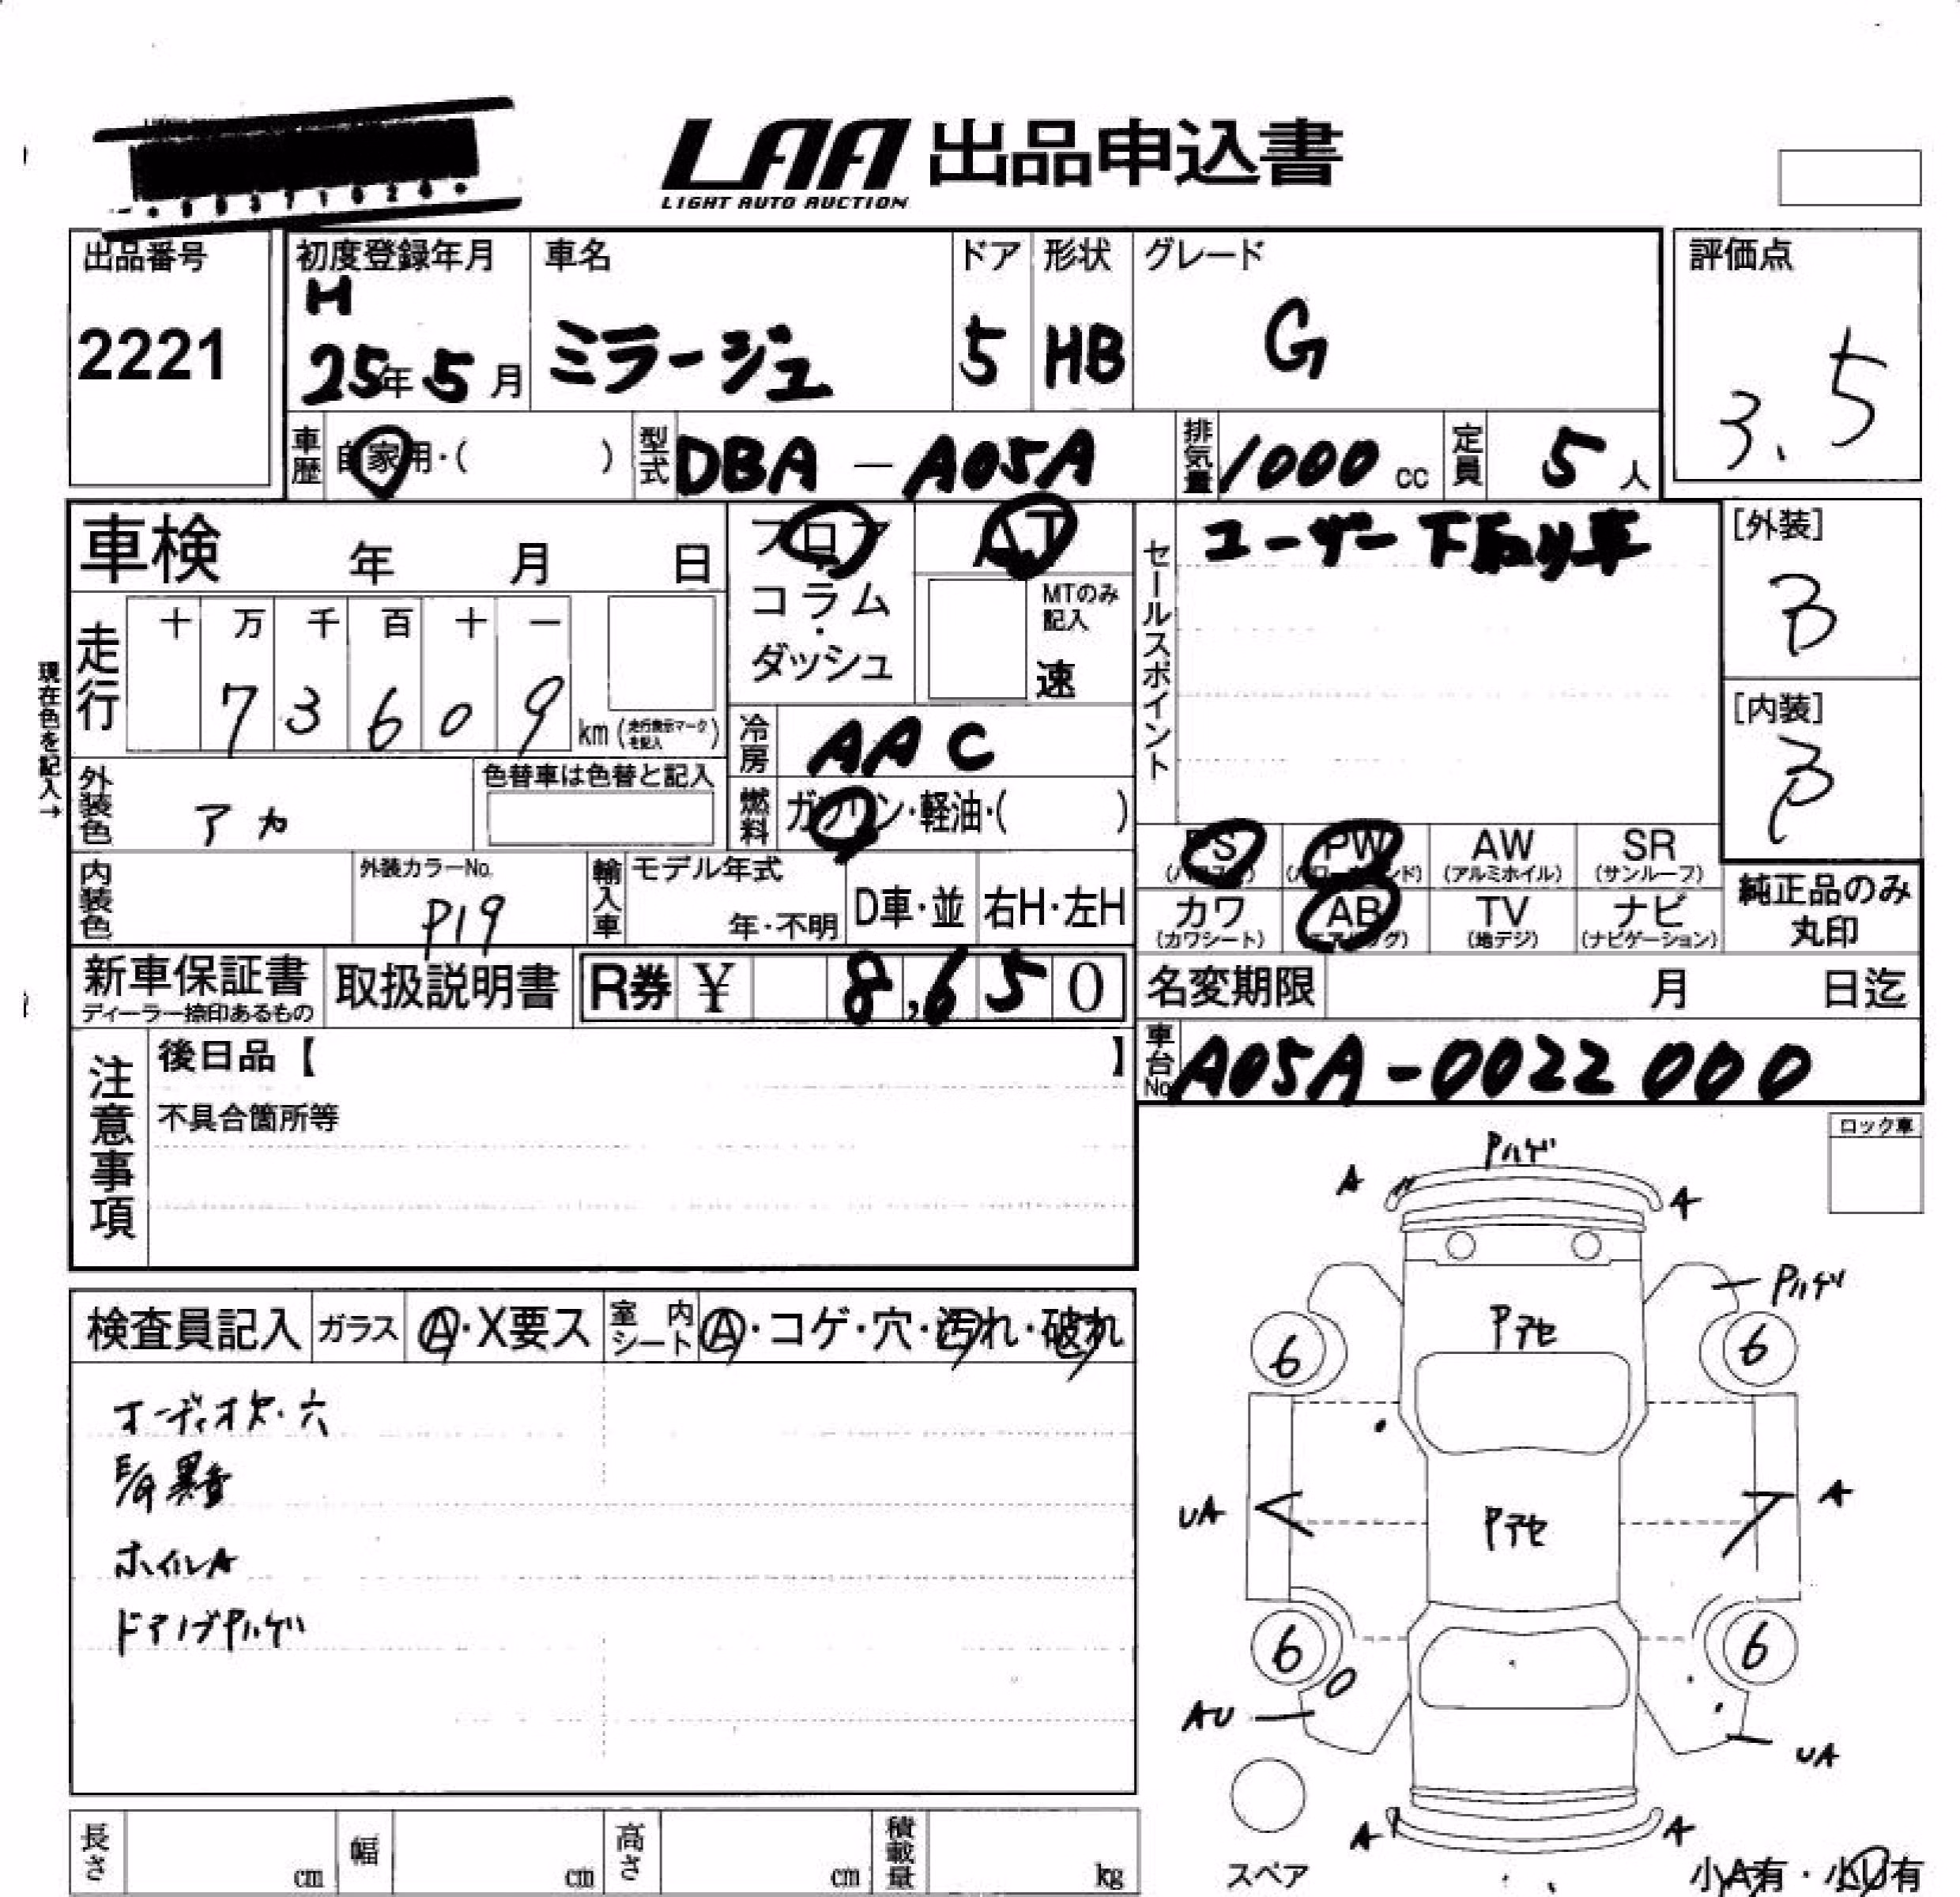 LAA 出品申込書
LIGHT AUTO AUCTION
出品番号
2221
初度登録年月
H
25年5月
車名
ミラージュ
ドア
5
形状
HB
グレード
G
評価点
3.5
車歴
自家用・( )
型式
DBA-A05A
排気量
1000 cc
定員
5 人
車検 年 月 日
フロア
コラム
・
ダッシュ
AT
MTのみ
記入
速
セールスポイント
ユーザー下取り車
[外装]
B
[内装]
B
現在色を記入→
走行
十 万 千 百 十 一
7 3 6 0 9
km (走行表示マークを記入)
冷房
AAC
外装色
アカ
色替車は色替と記入
燃料
ガソリン・軽油・( )
PS PW AW SR
(アルミホイル) (サンルーフ)
カワ AB TV ナビ
(カワシート) (エアバッグ) (地デジ) (ナビゲーション)
純正品のみ
丸印
内装色
外装カラーNo.
P19
輸入車
モデル年式
年・不明
D車・並
右H・左H
新車保証書
ディーラー捺印あるもの
取扱説明書
R券 ¥ 8,650
名変期限 月 日迄
車台No
A05A-0022000
注意事項
後日品【 】
不具合箇所等
ロック車
検査員記入 ガラス A・X要ス 室内シート A・コゲ・穴・汚れ・破れ
オーディオ欠・穴
E/G異音
ホイルA
ドアノブPハゲ
Pハゲ
A A
Pハゲ
Pアセ
6 6
UA A
Pアセ
6 6
AU UA
A A
スペア
小A有・小U有
長さ cm 幅 cm 高さ cm 積載量 kg